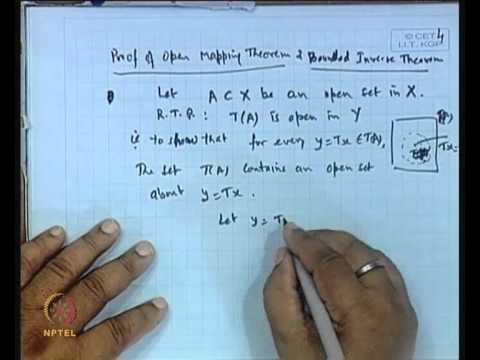 © CET
I.I.T. KGP
4
Proof of Open Mapping Theorem & Bounded Inverse Theorem
Let A ⊂ X be an open set in X.
R.T.P. : T(A) is open in Y
ie to show that for every y = Tx ∈ T(A),
The set T(A) contains an open set
about y = Tx.
Let y = Tx
T(A)
Tx=
NPTEL